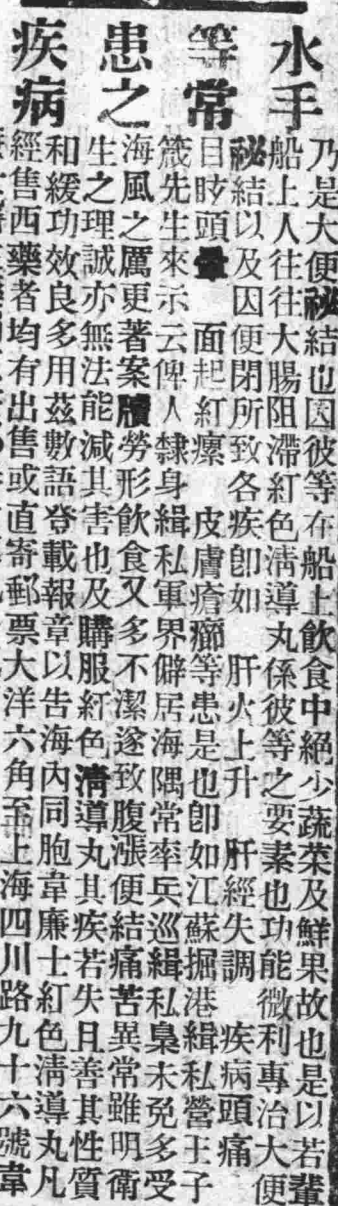 水手
等常
患之
疾病
乃是大便祕結也因彼等在船上飲食中絕少蔬菜及鮮果故也是以若輩
船上人往往大腸阻滯紅色淸導丸係彼等之要素也功能微利專治大便
祕結以及因便閉所致各疾卽如 肝火上升 肝經失調 疾病頭痛
目眩頭暈 面起紅瘰 皮膚瘡癤等患是也卽如江蘇掘港緝私營王子
箴先生來示云俾人隸身緝私軍界僻居海隅常率兵巡緝私梟未免多受
海風之厲更著案牘勞形飮食又多不潔遂致腹漲便結痛苦異常雖明衛
生之理誠亦無法能減其害也及購服紅色淸導丸其疾若失且善其性質
和緩功效良多用茲數語登載報章以吿海內同胞韋廉士紅色淸導丸凡
經售西藥者均有出售或直寄郵票大洋六角至上海四川路九十六號韋